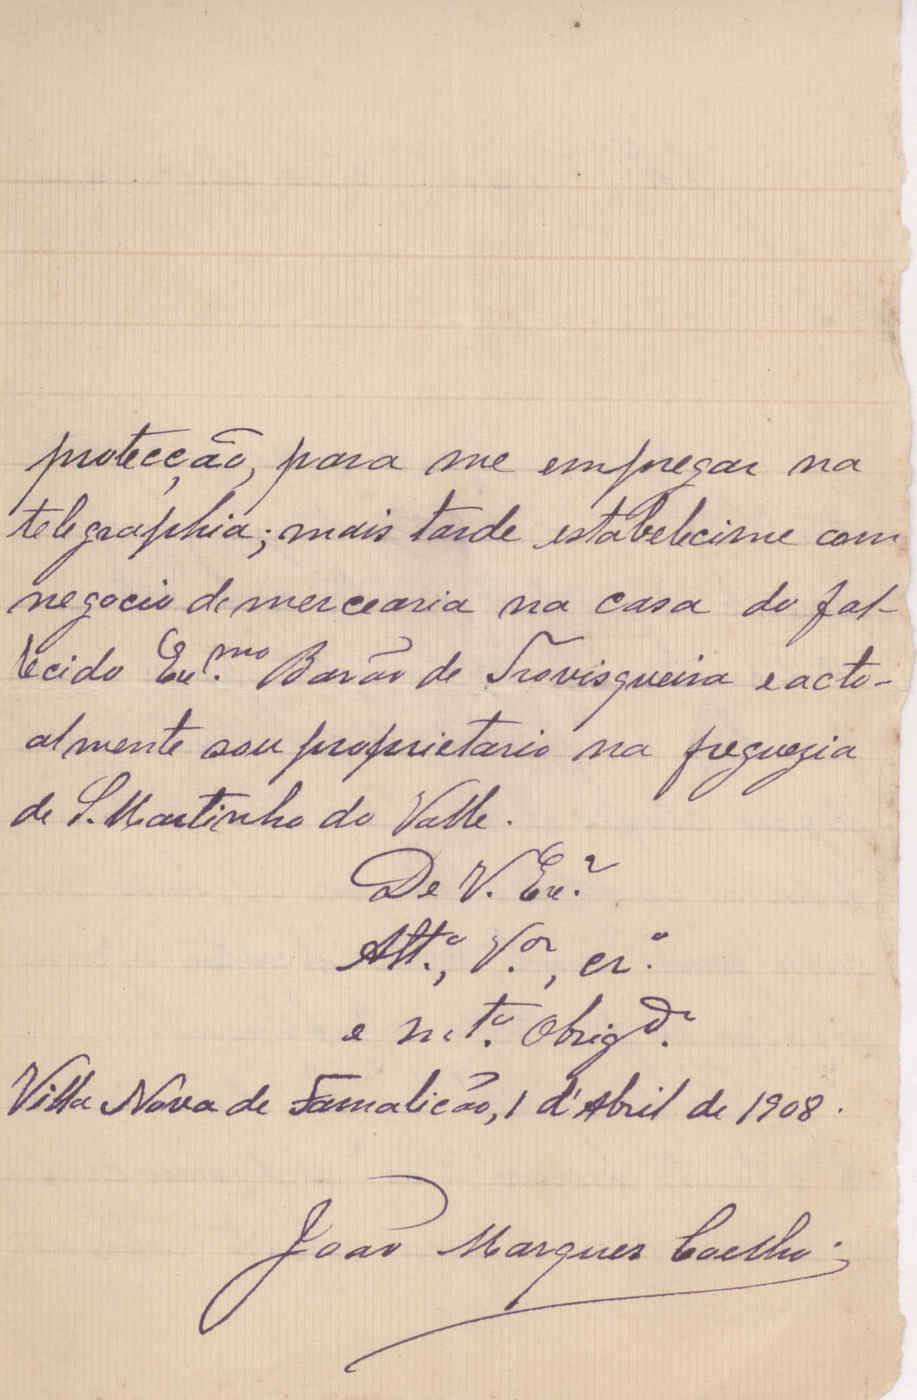 protecção, para me empregar na
telegraphia; mais tarde estabelecime com
negocio de mercearia na casa do fal-
lecido Ex.mo Barão de Trovisqueira e acto-
almente sou proprietario na freguezia
de S. Martinho do Valle.
De V. Ex.ª
Att.º, V.or, cr.º
e m.tº Obrigd.º
Villa Nova de Famalicão, 1 d'Abril de 1908.
João Marques Coelho.